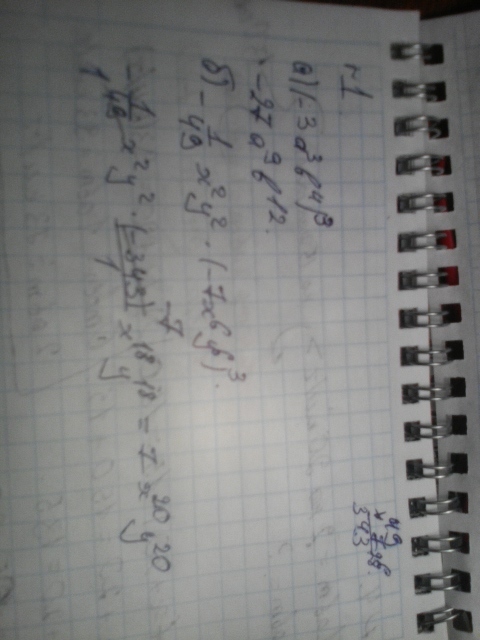 №1
а) (-3a³b⁴)³
= -27a⁹b¹².
б) -1/49 x²y² · (-7x⁶y⁶)³.
-1/49 x²y² · (-343)x¹⁸y¹⁸ = 7x²⁰y²⁰
1 1 -7
49
× 7
343